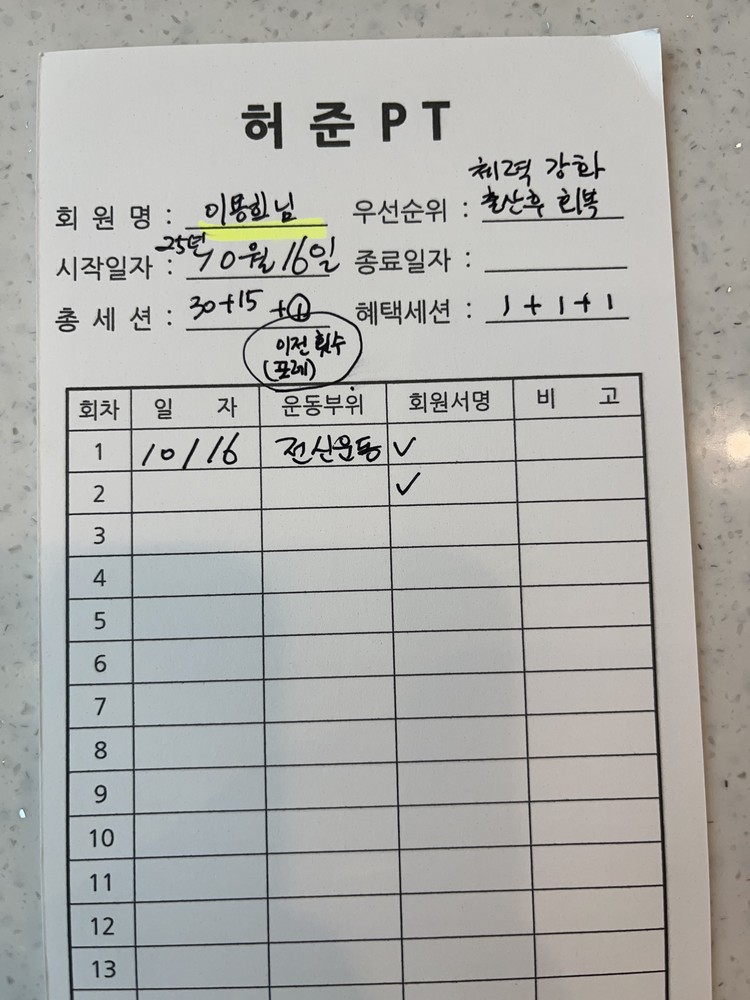 허준PT
체력 강화
회원명 : 이몽희님 우선순위 : 출산후 회복
시작일자 : 25년 10월 16일 종료일자 :
총세션 : 30+15 +① 혜택세션 : 1+1+1
이전 횟수
(포레)
회차 일 자 운동부위 회원서명 비 고
1 10/16 전신운동 ✓
2 ✓
3
4
5
6
7
8
9
10
11
12
13